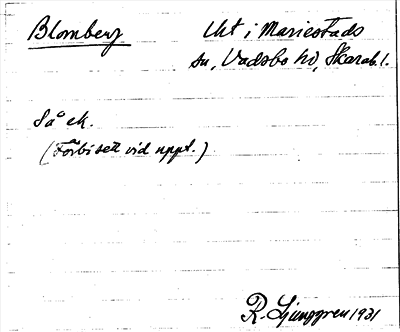 Blomberg
Utt i Mariestads
sn, Vadsbo hd, Skarab. l.
Så ek.
(Förbisett vid uppt.)
R. Ljunggren 1931